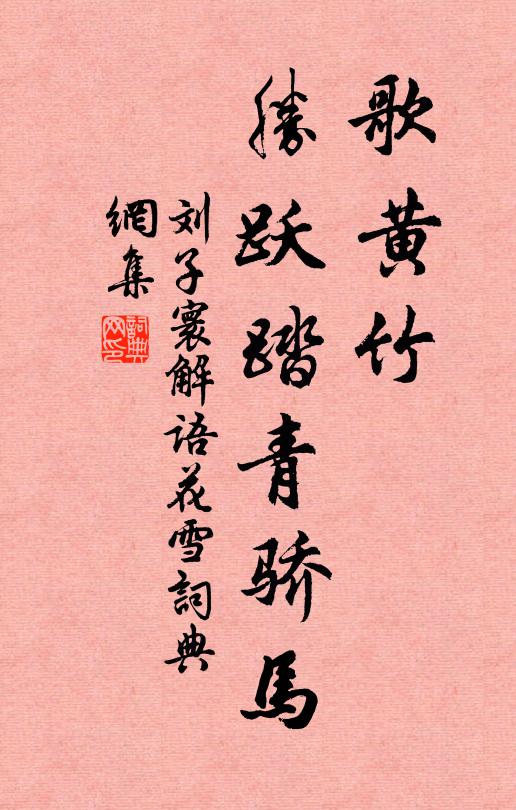 歌黄竹
胜跃踏青骄馬
刘子寰解语花雪詞典
網集
詞典网印